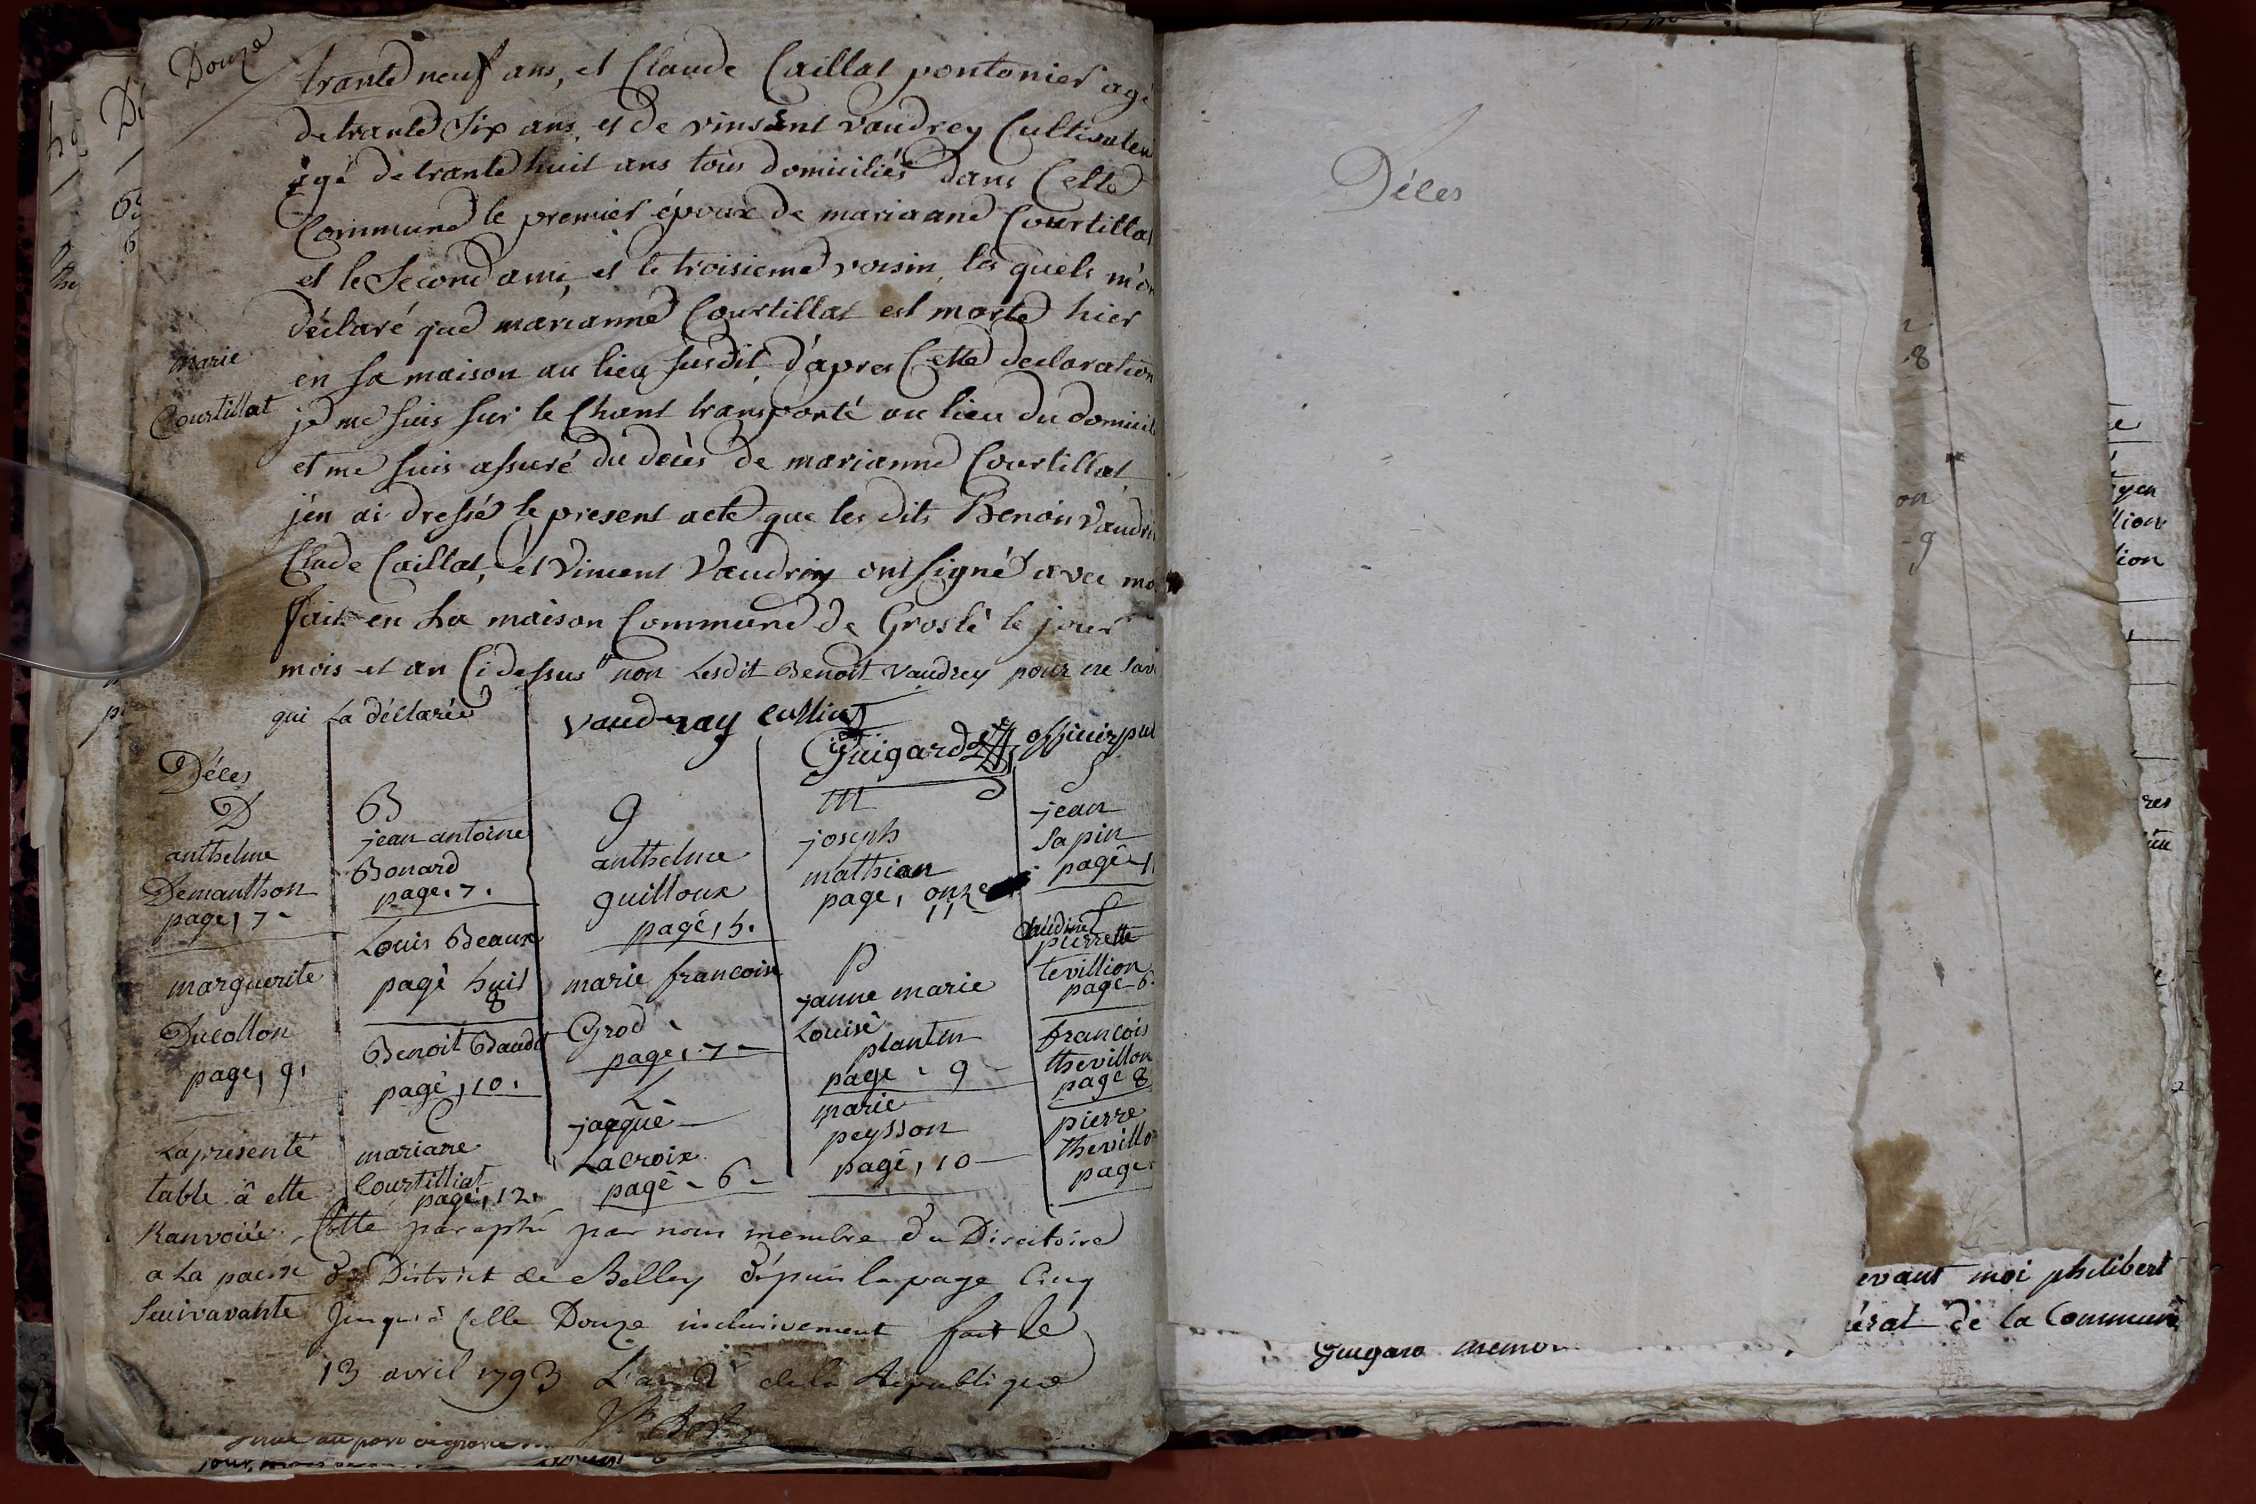 Douze
trante neuf ans, et Claude Caillat pontonier agé
de trante Six ans, et de vinsent vaudrey Cultivateu
agé de trante huit ans tous domiciliés dans Cette
Commune le premier époux de mariaane Courtillat
et le Second ami, et le troisieme voisin, les quels m'on
déclaré que marianne Courtillat est morte hier
marie
Courtillat
en sa maison au lieu susdit, d'apres Cette declaration
je me suis sur le Chant transporté au lieu du domicile
et me suis assuré du décès de marianne Courtillat,
j'en ai dressé le present acte que les dits Benoit Vaudri
Clade Caillat, et Vincent Vaudrey ont signé avec mo
fait en La maison Commune de Groslé le jour
mois et an Ci dessus non Lesdit Benoit Vaudrey pour ne Savo
qui La déclarée
vaud-ray Cultiv
Guigard officier pub
Déces
D
anthelme
Demanthon
page, 7-
marguerite
Ducollon
page, 9,
B
jean antoine
Bonard
page, 7.
Louis Beaux
pagé huit
8
Benoit Baudet
pagé, 10.
C
mariane
Courtilliat
page, 12.
g
anthelme
guilloux
pagé, 5.
marie francoise
Grod
page, 7-
L
jaque
Lacroix
pagé - 6 -
m
joseph
mathian
page, onze
11
p
janne marie
Louise
plantin
page - 9 -
marie
peysson
pagé, 10
S
jean
Sapin
pagé 1
Claudine
pierrette
tevillion
page 6.
francois
thevillon
page 8
pierre
thevillon
page
La présente
table à ette
Ranvoiée
a La pacse
Suivavante
Cotte paraphé par nous membre du Directoire
du District de Belley dépuis la page Cinq
Jusqu'à Celle Douze inclusivement fait le
13 avril 1793 L'an 2e de la République
jour, mois
Déces
2
8
on
-9
evant moi philibert
éral de la Commune
guigard memb